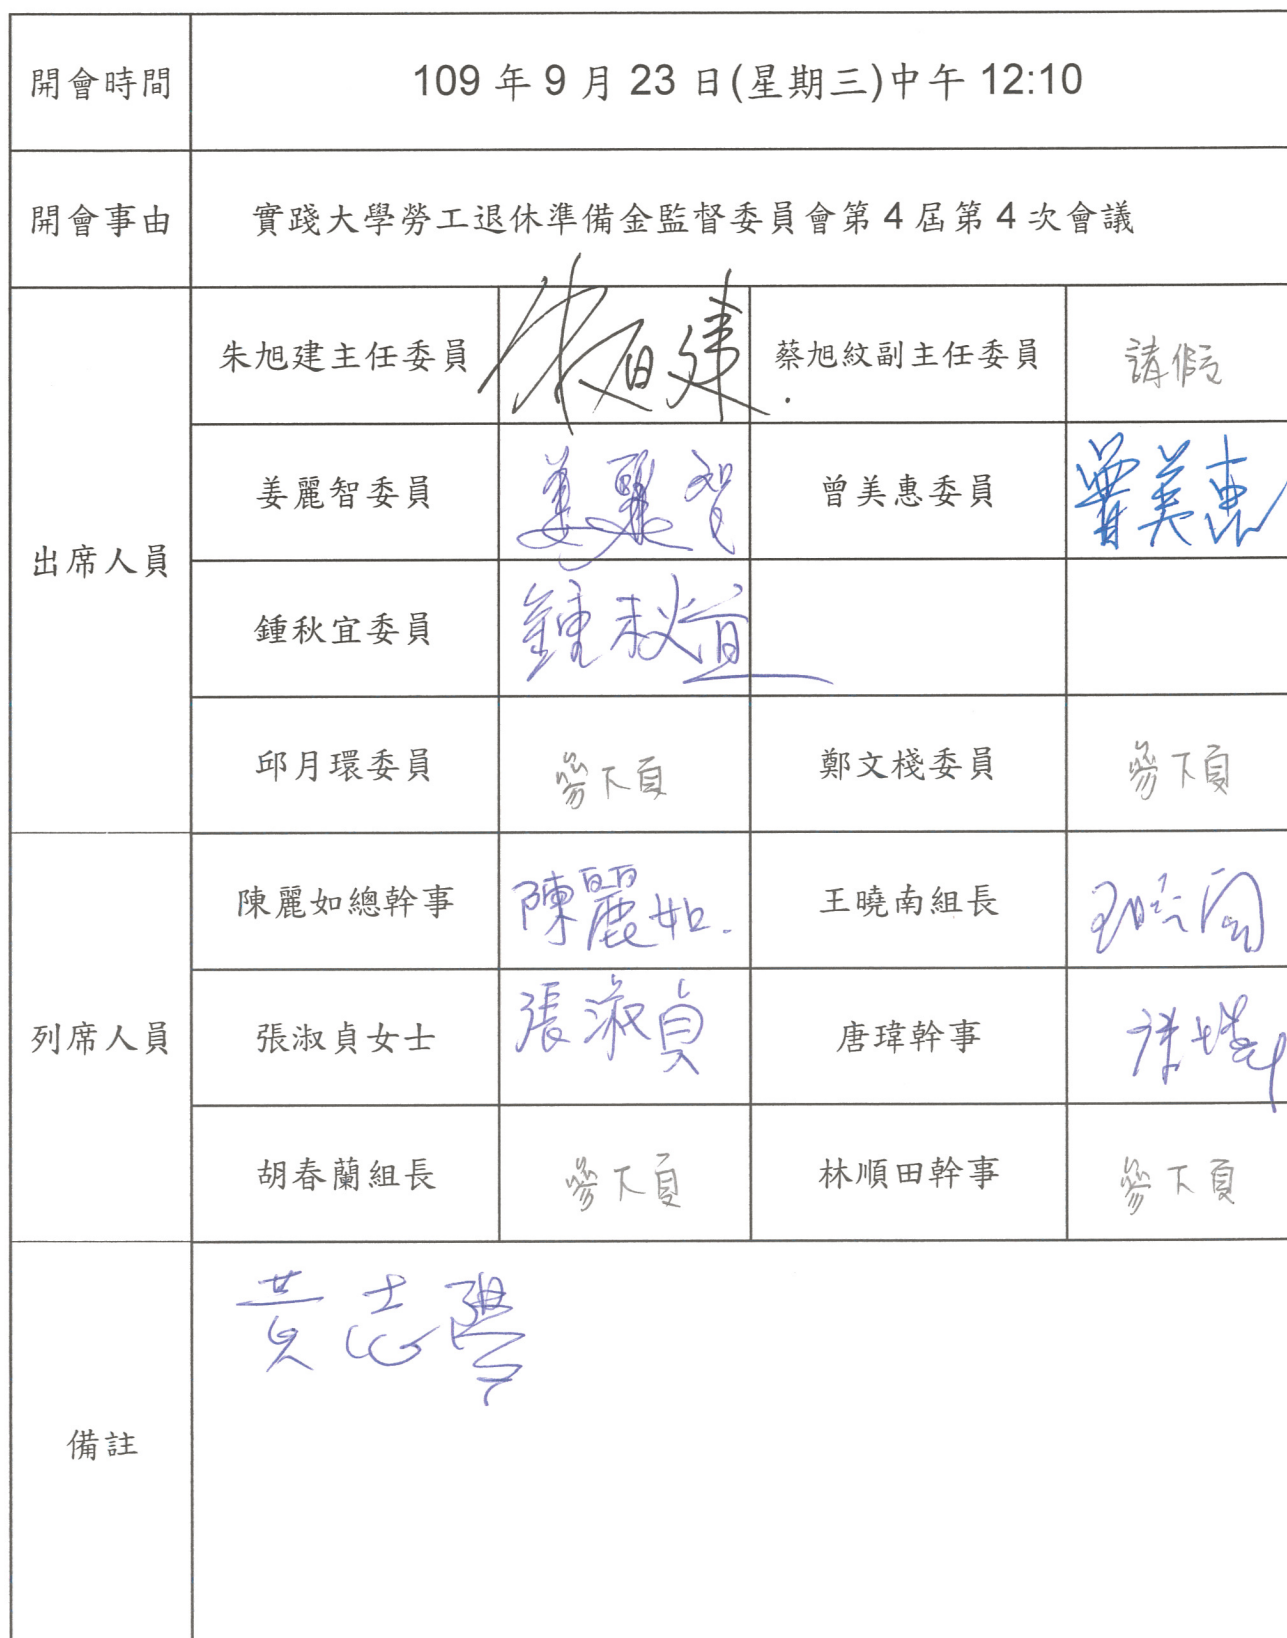 開會時間 109 年 9 月 23 日(星期三)中午 12:10
開會事由 實踐大學勞工退休準備金監督委員會第 4 屆第 4 次會議
出席人員
朱旭建主任委員 朱旭建 蔡旭紋副主任委員 請假
姜麗智委員 姜麗智 曾美惠委員 曾美惠
鍾秋宜委員 鍾秋宜
邱月環委員 參下頁 鄭文棧委員 參下頁
列席人員
陳麗如總幹事 陳麗如. 王曉南組長 王曉南
張淑貞女士 張淑貞 唐瑋幹事 唐瑋
胡春蘭組長 參下頁 林順田幹事 參下頁
備註
黃志